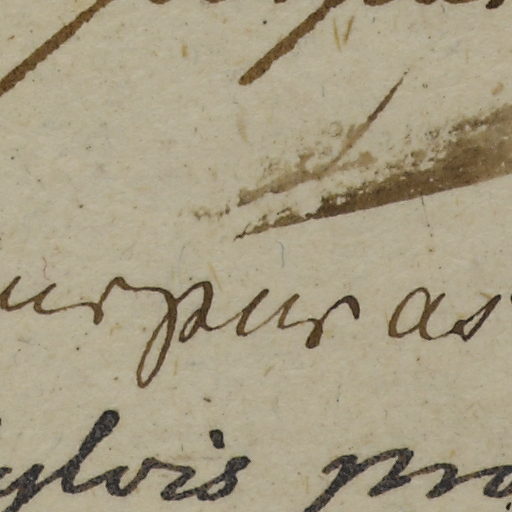 urpur as
ylvis pro